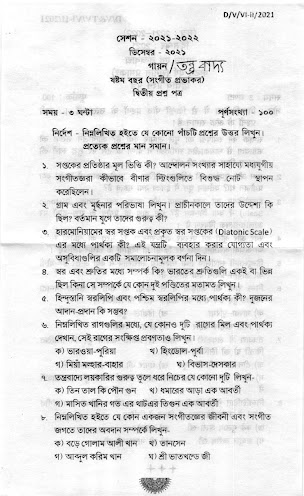 D/V/VI-ii/2021
সেশন - ২০২১-২০২২
ডিসেম্বর - ২০২১
গায়ন/তন্ত্র বাদ্য
ষষ্ঠম বছর (সংগীত প্রভাকর)
দ্বিতীয় প্রশ্ন পত্র
সময় - ৩ ঘন্টা পূর্ণসংখ্যা - ১০০
নির্দেশ - নিম্নলিখিত হইতে যে কোনো পাঁচটি প্রশ্নের উত্তর লিখুন।
প্রত্যেক প্রশ্নের মান সমান।
১. সপ্তকের প্রতিষ্ঠার মূল ভিত্তি কী? আন্দোলন সংখ্যার সাহায্যে মধ্যযুগীয়
সংগীতজ্ঞরা কীভাবে বীণার স্টিংগুলিতে বিশুদ্ধ নোট স্থাপন
করেছিলেন।
২. গ্রাম এবং মূর্ছনার পরিভাষা লিখুন। প্রাচীনকালে তাদের উদ্দেশ্য কি
ছিল? বর্তমান যুগে তাদের গুরুত্ব কী?
৩. হারমোনিয়ামের স্বর সপ্তক এবং প্রকৃত স্বর সপ্তকের (Diatonic Scale)
এর মধ্যে পার্থক্য কী? এই যন্ত্রটি ব্যবহার করার যোগ্যতা এবং
অসুবিধাগুলির একটি সমালোচনামূলক বর্ণনা দিন।
৪. স্বর এবং শ্রুতির মধ্যে সম্পর্ক কি? ভারতের শ্রুতিগুলি একই বা ভিন্ন
ছিল কিনা সে সম্পর্কে যে কোন দুই পন্ডিতের মতামত লিখুন।
৫. হিন্দুস্তানি স্বরলিপি এবং পশ্চিম স্বরলিপির মধ্যে পার্থক্য কী? দুজনের
আদান-প্রদান কি সম্ভব?
৬. নিম্নলিখিত রাগগুলির মধ্যে, যে কোনও দুটি রাগের মিল এবং পার্থক্য
দেখান, সেই রাগের সংক্ষিপ্ত প্রবণতাও লিখুন।
ক) ভারওয়া-পুরিয়া খ) হিংডোল-পূর্বা
গ) মিয়াঁ মল্হার-বাহার ঘ) বিভাস-দেসকার
৭. তন্ত্রবাদ্যে লয়কারির গুরুত্ব তুলে ধরে নিচের যে কোনো দুটি লিখুন-
ক) তিন তাল কি পৌন গুন খ) ধমারের আড়া এক আবর্তী
গ) মাসিত খানির গত এর থাটএর তিগুন এক আবর্তী
৮. নিম্নলিখিত হইতে যে কোন একজন সংগীতজ্ঞের জীবনী এবং সংগীত
জগতে তাদের অবদান সম্পর্কে লিখুন।
ক) বড়ে গোলাম আলী খান খ) তানসেন
গ) আব্দুল করিম খান ঘ) শ্রী ভাতখন্ডে জী